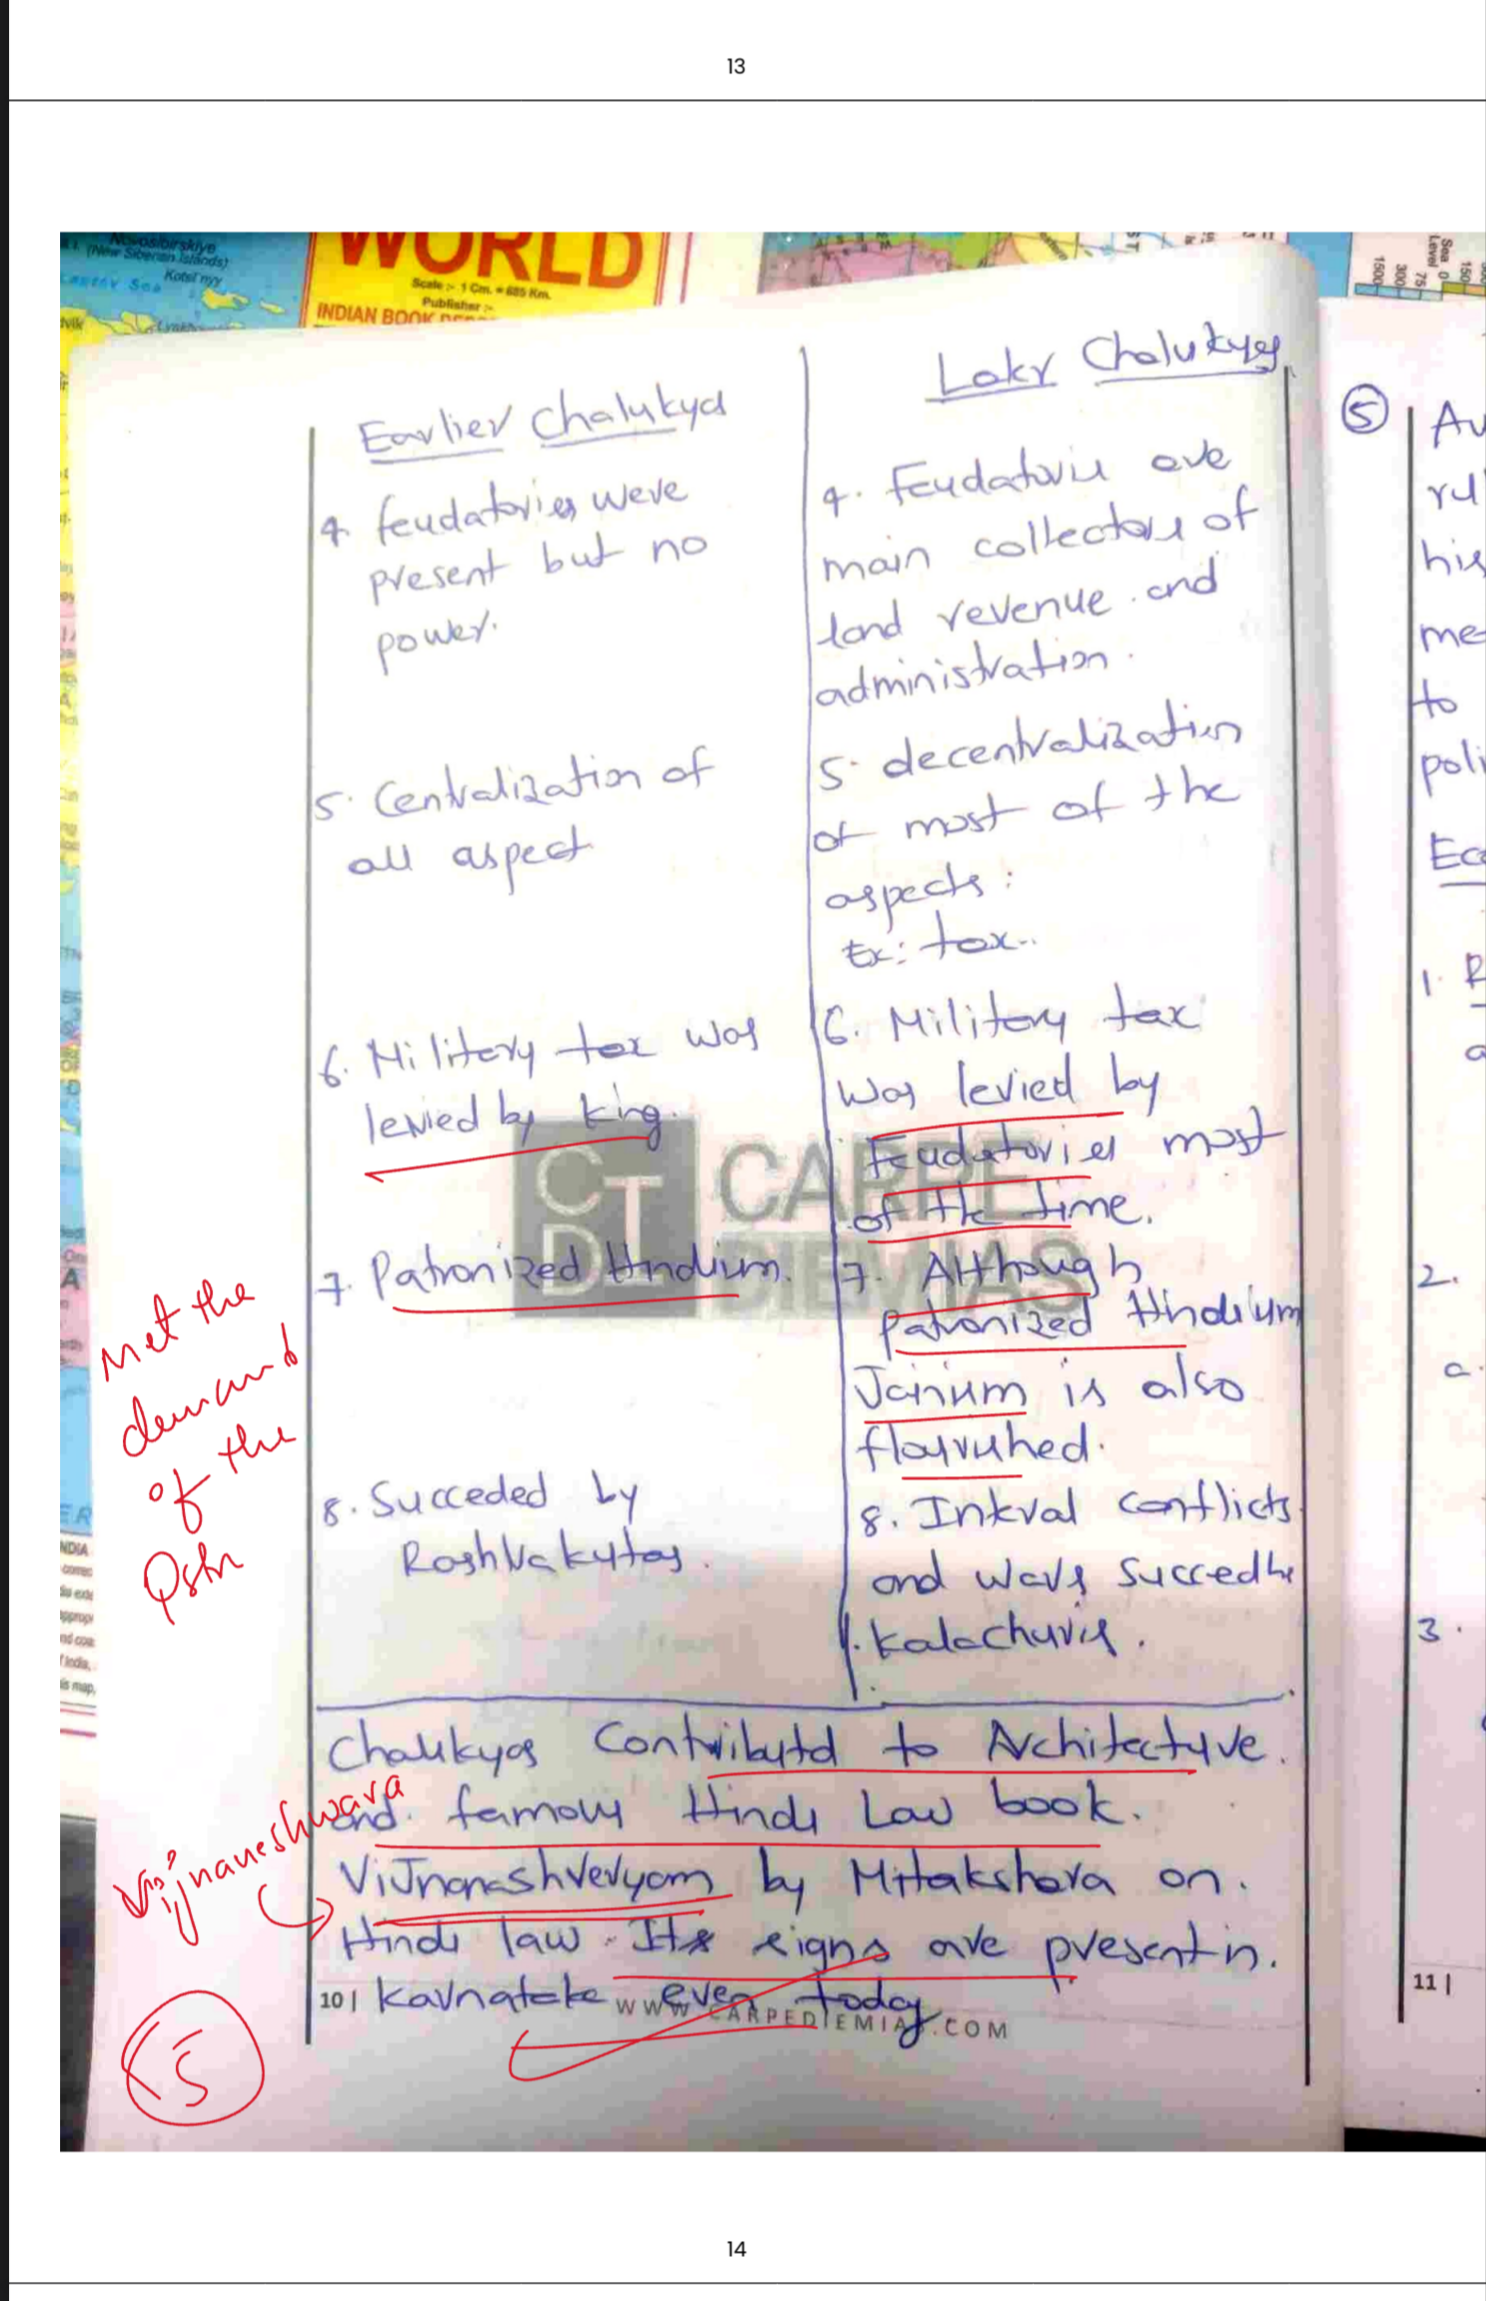 13
Novosibirskiye
(New Siberian Islands)
Kotel'nyy
WORLD
Scale :- 1 Cm. = 685 Km.
Publisher :-
INDIAN BOOK
Sea Level
0
75
150
300
1500
Earlier Chalukyas
4. feudatories were
present but no
power.
5. Centralization of
all aspect
6. Militery tax was
levied by king.
7. Patronized Hinduism.
8. Succeded by
Rashtrakutas.
Later Chalukyas
4. Feudatories are
main collectors of
land revenue and
administration.
5. decentralization
of most of the
aspects:
Ex: tax..
6. Militery tax
was levied by
Feudatories most
of the time.
7. Although
patronized Hinduism
Jainism is also
flourished.
8. Interval conflicts
and wars succed by
Kalachuris.
Chalukyas Contributd to Architecture.
and famous Hindu Law book.
ViJnanashveryam by Mitakshara on.
Hindu law. Its signs are present in.
Karnataka even today
Met the
demand
of the
Qstn
Vijnaneshwara
5
CTD
CARPE
DIEMIAS
10 |
WWW.CARPEDIEMIAS.COM
5
me
to
poli
1.
2.
a.
3.
11 |
14